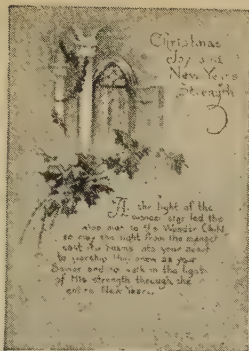 Christmas
Joy and
New Years
Strength
As the light of the
wonder star led the
wise men to the Wonder Child
so may the light from the manger
cast its beams into your heart
to worship Him anew as your
Savior and to walk in the light
of His strength through the
entire New Year.